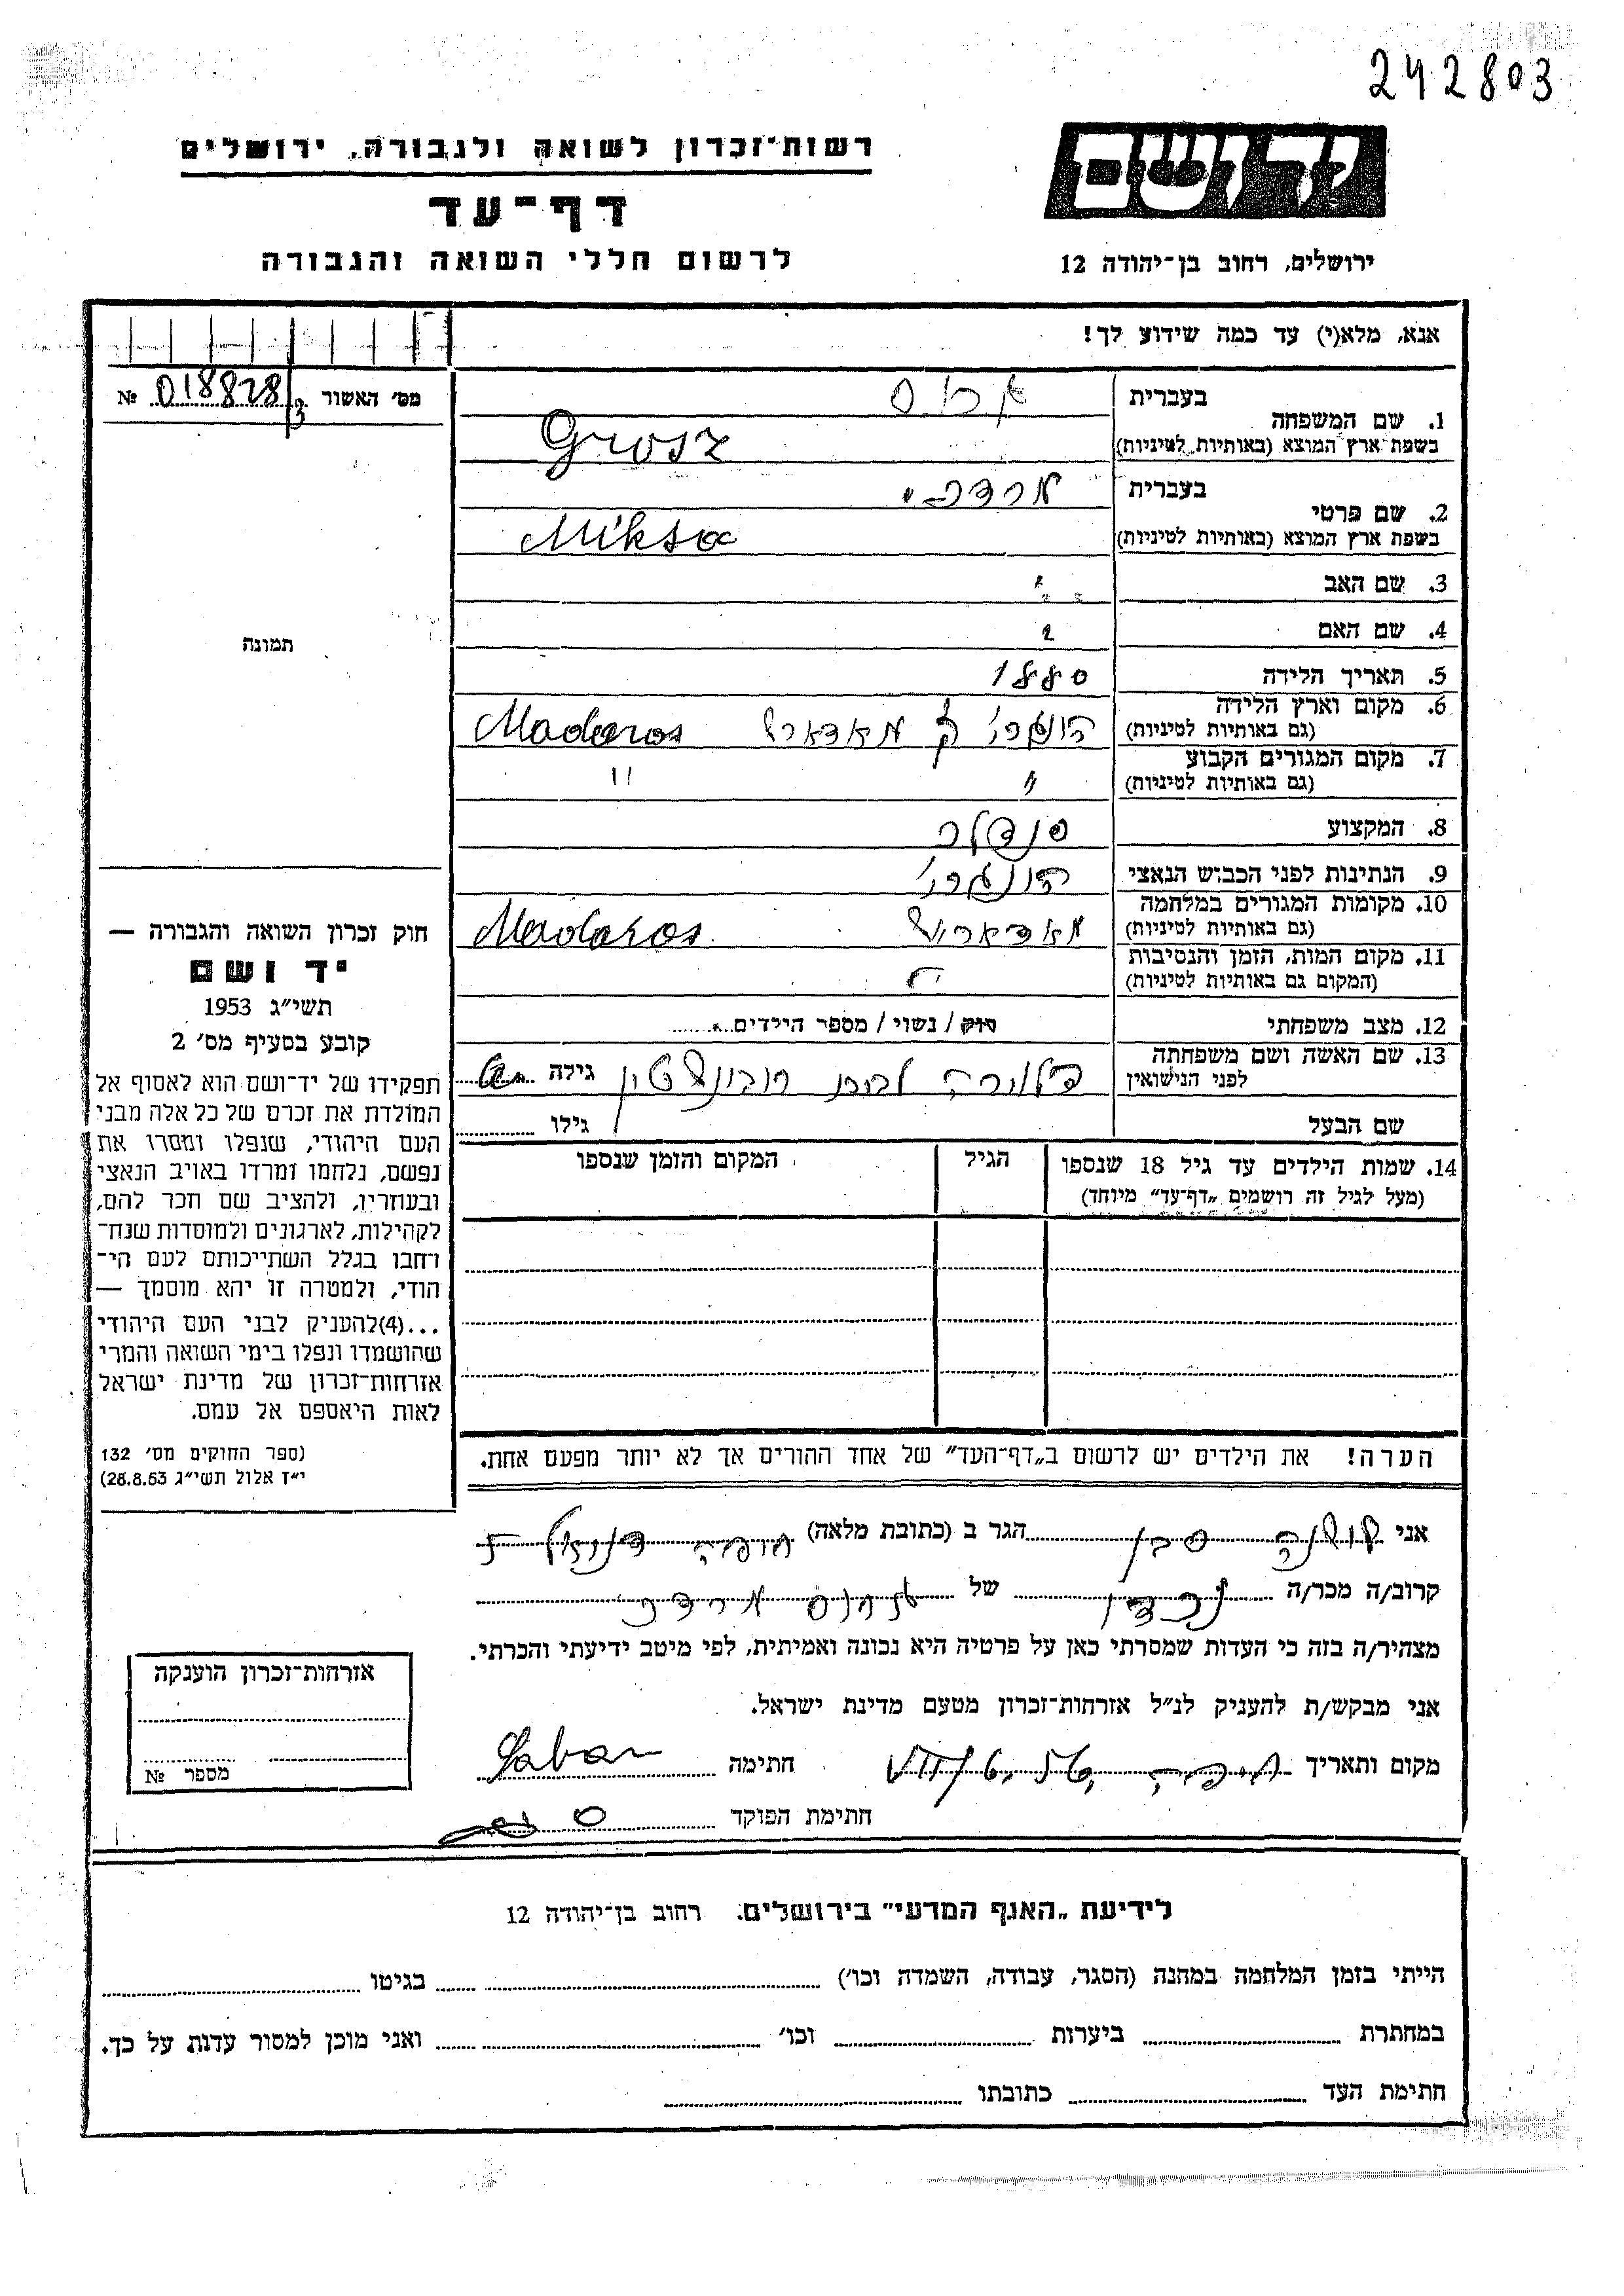 242803
רשות־זכרון לשואה ולגבורה, ירושלים
דף־עד
לרשום חללי השואה והגבורה
יד ושם
ירושלים, רחוב בן־יהודה 12
אנא, מלא(י) עד כמה שידוע לך!
מס׳ האשור 018828/3 №
תמונה
1. שם המשפחה
בעברית
בשפת ארץ המוצא (באותיות לטיניות) Grosz
2. שם פרטי
בעברית מרדכי
בשפת ארץ המוצא (באותיות לטיניות) Miksa
3. שם האב
4. שם האם
5. תאריך הלידה 1880
6. מקום וארץ הלידה
(גם באותיות לטיניות) הונגרי מאדארש Madaros
7. מקום המגורים הקבוע
(גם באותיות לטיניות) " "
8. המקצוע סנדלר
9. הנתינות לפני הכבוש הנאצי הונגרי
10. מקומות המגורים במלחמה
(גם באותיות לטיניות) מאדארש Madaros
11. מקום המות, הזמן והנסיבות
(המקום גם באותיות לטיניות)
12. מצב משפחתי רוק / נשוי / מספר הילדים
13. שם האשה ושם משפחתה
לפני הנישואין גילה
שם הבעל גילו
14. שמות הילדים עד גיל 18 שנספו הגיל המקום והזמן שנספו
(מעל לגיל זה רושמים „דף־עד" מיוחד)
הערה! את הילדים יש לרשום ב„דף־העד" של אחד ההורים אך לא יותר מפעם אחת.
חוק זכרון השואה והגבורה —
יד ושם
תשי״ג 1953
קובע בסעיף מס׳ 2
תפקידו של יד־ושם הוא לאסוף אל
המולדת את זכרם של כל אלה מבני
העם היהודי, שנפלו ומסרו את
נפשם, נלחמו ומרדו באויב הנאצי
ובעוזריו, ולהציב שם וזכר להם,
לקהילות, לארגונים ולמוסדות שנח־
רחבו בגלל השתייכותם לעם הי־
הודי, ולמטרה זו יהא מוסמך —
...(4)להעניק לבני העם היהודי
שהושמדו ונפלו בימי השואה והמרי
אזרחות־זכרון של מדינת ישראל
לאות היאספם אל עמם.
(ספר החוקים מס׳ 132
י״ז אלול תשי״ג 28.8.53)
אני הגר ב (כתובת מלאה) חיפה
קרוב/ה מכר/ה של
מצהיר/ה בזה כי העדות שמסרתי כאן על פרטיה היא נכונה ואמיתית, לפי מיטב ידיעתי והכרתי.
אני מבקש/ת להעניק לנ״ל אזרחות־זכרון מטעם מדינת ישראל.
מקום ותאריך חיפה חתימה Saban
חתימת הפוקד
אזרחות־זכרון הוענקה
מספר №
לידיעת „האגף המדעי" בירושלים, רחוב בן־יהודה 12
הייתי בזמן המלחמה במחנה (הסגר, עבודה, השמדה וכו׳) בגיטו
במחתרת ביערות וכו׳ ואני מוכן למסור עדות על כך.
חתימת העד כתובתו